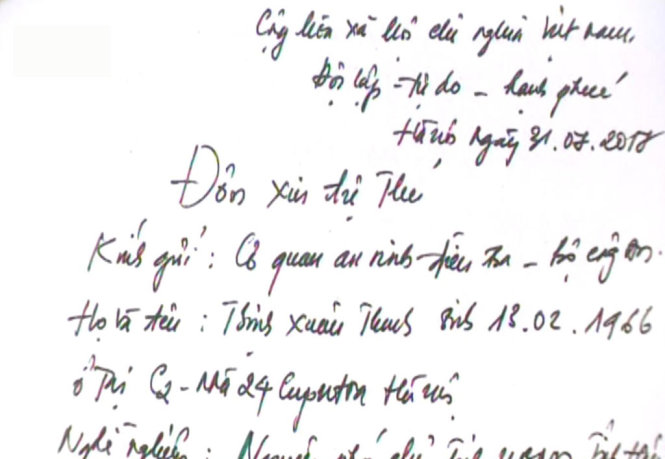 Cộng hòa xã hội chủ nghĩa Việt Nam,
Độc lập - Tự do - hạnh phúc
Hà Nội ngày 31.07.2017
Đơn xin tự Thú
Kính gửi : Cơ quan an ninh điều tra - Bộ công an.
Họ và tên : Trịnh Xuân Thanh sinh 13.02.1966
ở Tại C2 - Nhà 24 Hà nội
Nghề nghiệp : Nguyên phó chủ Tịch